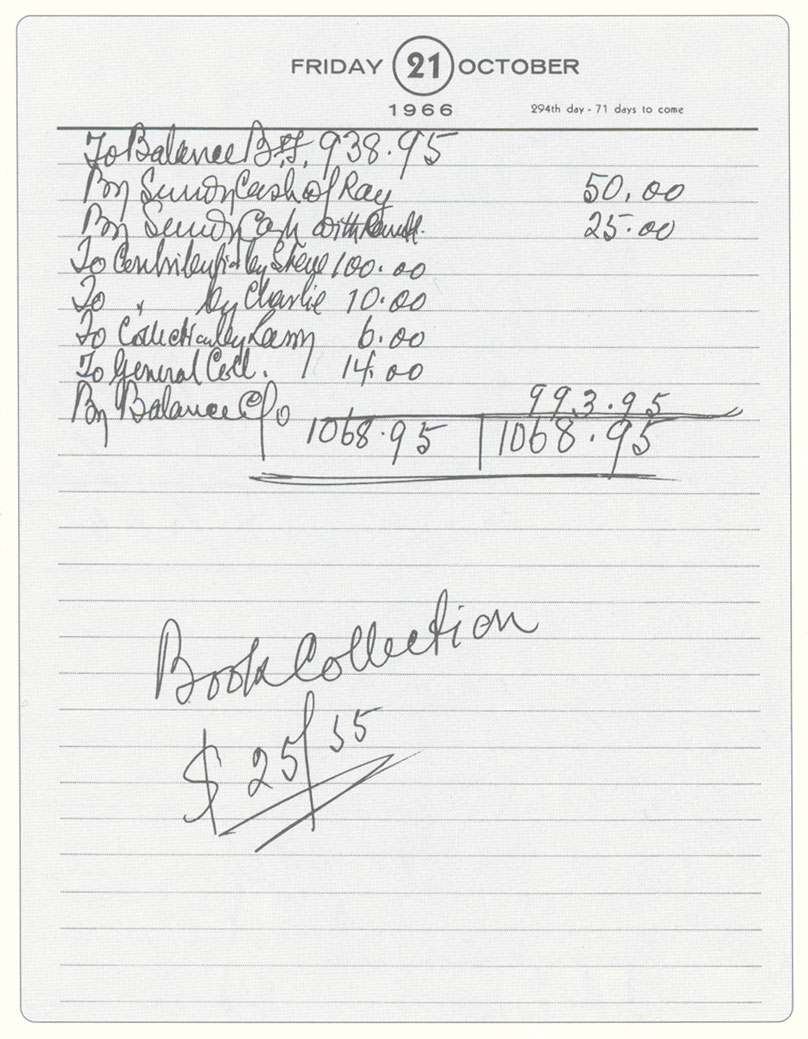 FRIDAY 21 OCTOBER
1966 294th day - 71 days to come
To Balance B/F. 938.95
By Cash of Ray 50.00
By Cash 25.00
To by Steve 100.00
To " by Charlie 10.00
To Collection by 6.00
To General Coll. 14.00
By Balance C/o 993.95
1068.95 1068.95
Book Collection
$ 25/55